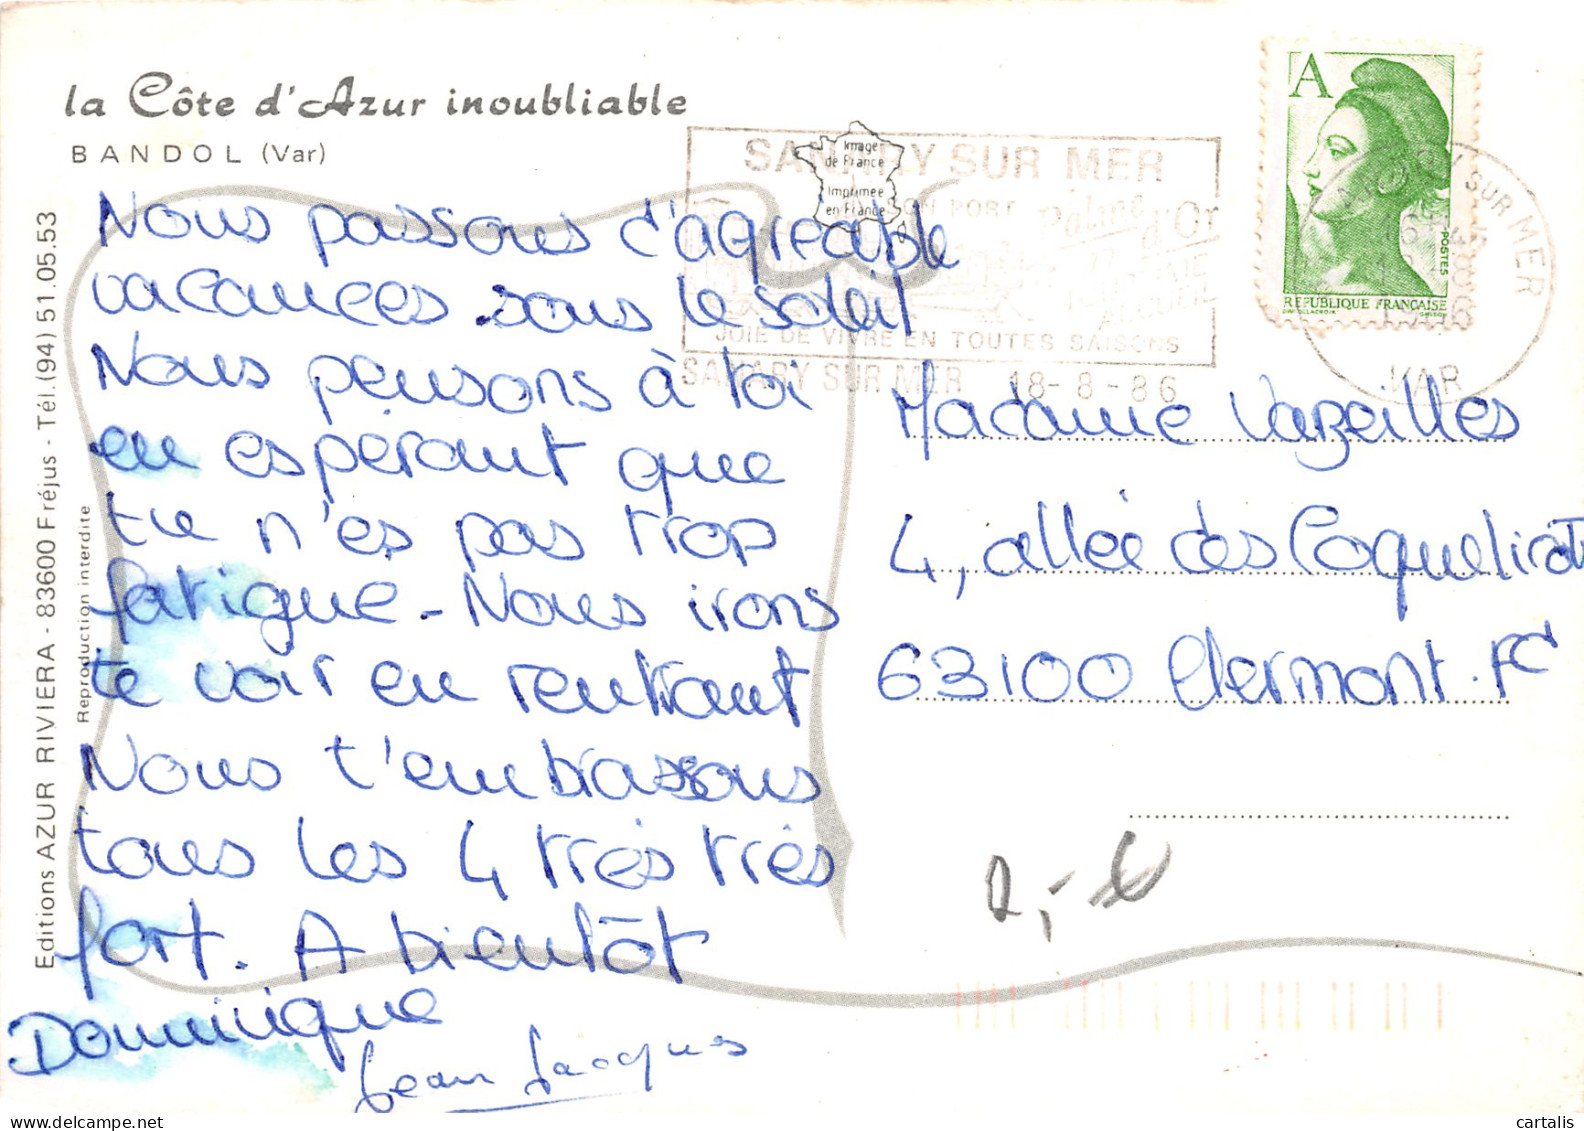 la Côte d'Azur inoubliable
BANDOL (Var)
Nous passons d'agréable
vacances sous le soleil
Nous pensons à toi
en espérant que
tu n'es pas trop
fatigué - Nous irons
te voir en rentrant
Nous t'embrassons
tous les 4 très très
fort. A bientôt
Dominique
Jean Jacques
Editions AZUR RIVIERA - 83600 Fréjus - Tél. (94) 51.05.53
Reproduction interdite
Image
de France
Imprimée
en France
SANARY SUR MER
SON PORT
Palme
d'Or
JOIE DE VIVRE EN TOUTES SAISONS
SANARY SUR MER 18-8-86
A
POSTES
REPUBLIQUE FRANÇAISE
SUR MER
VAR
Madame Vazeilles
4, allée des Coquelicots
63100 Clermont. Fd
2,- €
delcampe.net
cartalis